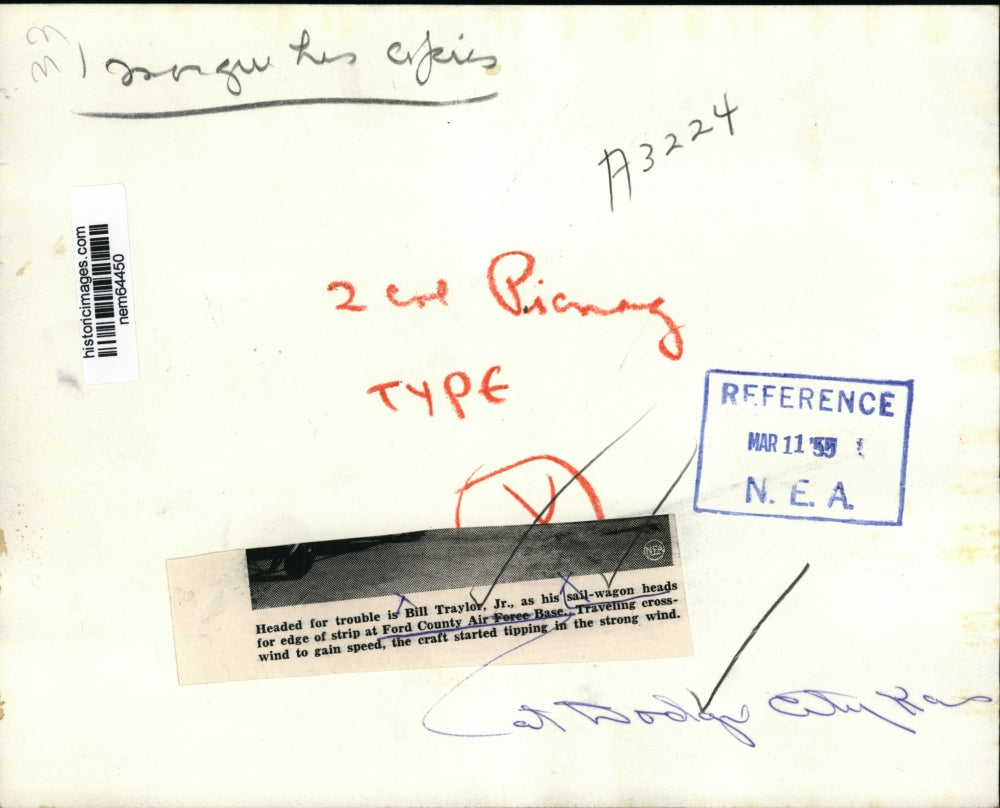 morgue has copies
A3224
2 col
TYPE
V
historicimages.com
nem64450
REFERENCE
MAR 11 '55
N. E. A.
NEA
Headed for trouble is Bill Traylor, Jr., as his sail-wagon heads
for edge of strip at Ford County Air Force Base. Traveling cross-
wind to gain speed, the craft started tipping in the strong wind.
at Dodge City Kas